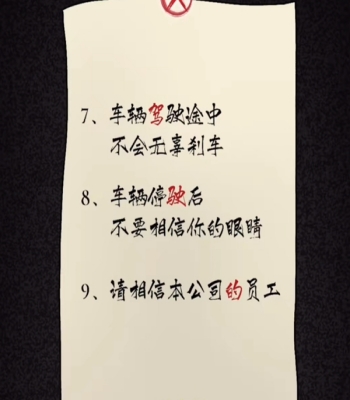 7、车辆驾驶途中
不会无辜刹车
8、车辆停驶后
不要相信你的眼睛
9、请相信本公司的员工